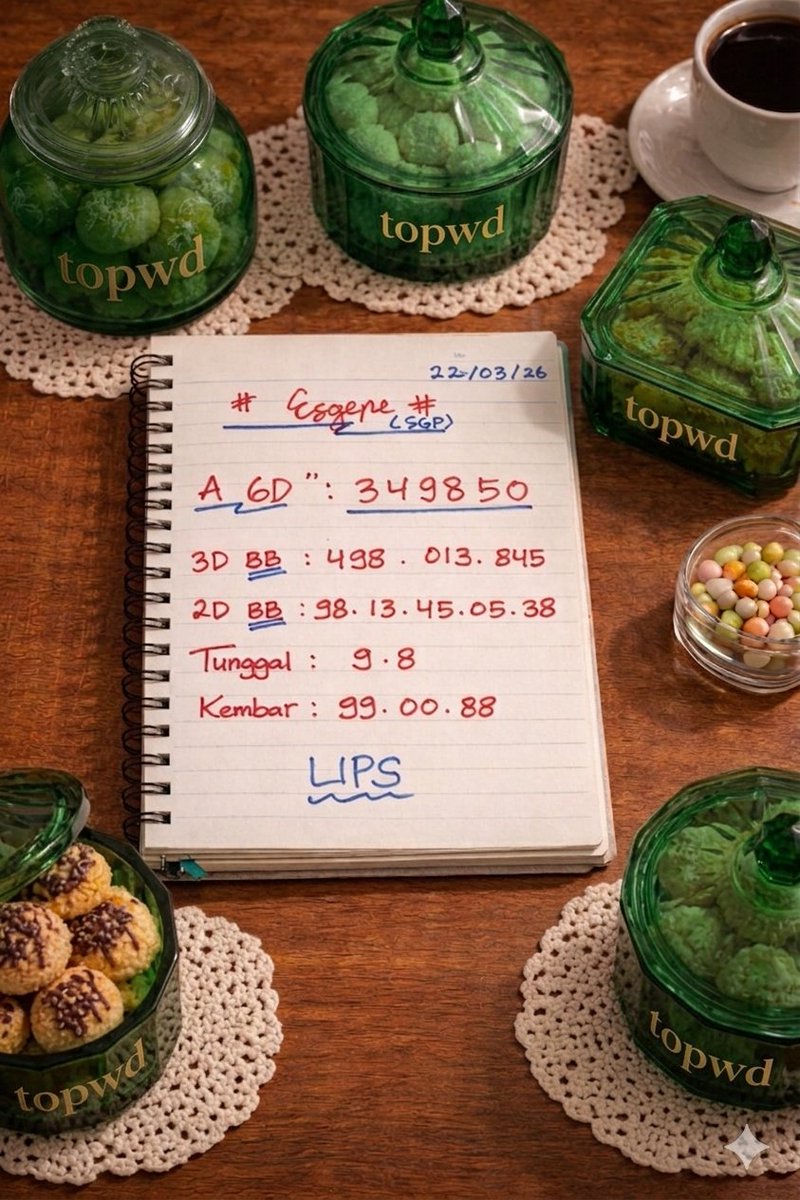 topwd
topwd
topwd
22/03/26
# Esgepe #
(SGP)
A 6D ": 349850
3D BB : 498 . 013. 845
2D BB : 98. 13. 45. 05. 38
Tunggal : 9.8
Kembar : 99. 00. 88
LIPS
topwd
topwd